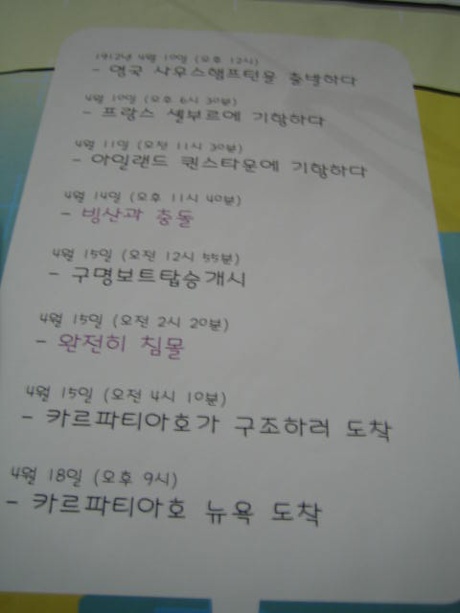 1912년 4월 10일 (오후 12시)
- 영국 사우스햄프턴을 출발하다
4월 10일 (오후 6시 30분)
- 프랑스 셀부르에 기항하다
4월 11일 (오전 11시 30분)
- 아일랜드 퀸스타운에 기항하다
4월 14일 (오후 11시 40분)
- 빙산과 충돌
4월 15일 (오전 12시 55분)
- 구명보트탑승개시
4월 15일 (오전 2시 20분)
- 완전히 침몰
4월 15일 (오전 4시 10분)
- 카르파티아호가 구조하러 도착
4월 18일 (오후 9시)
- 카르파티아호 뉴욕 도착